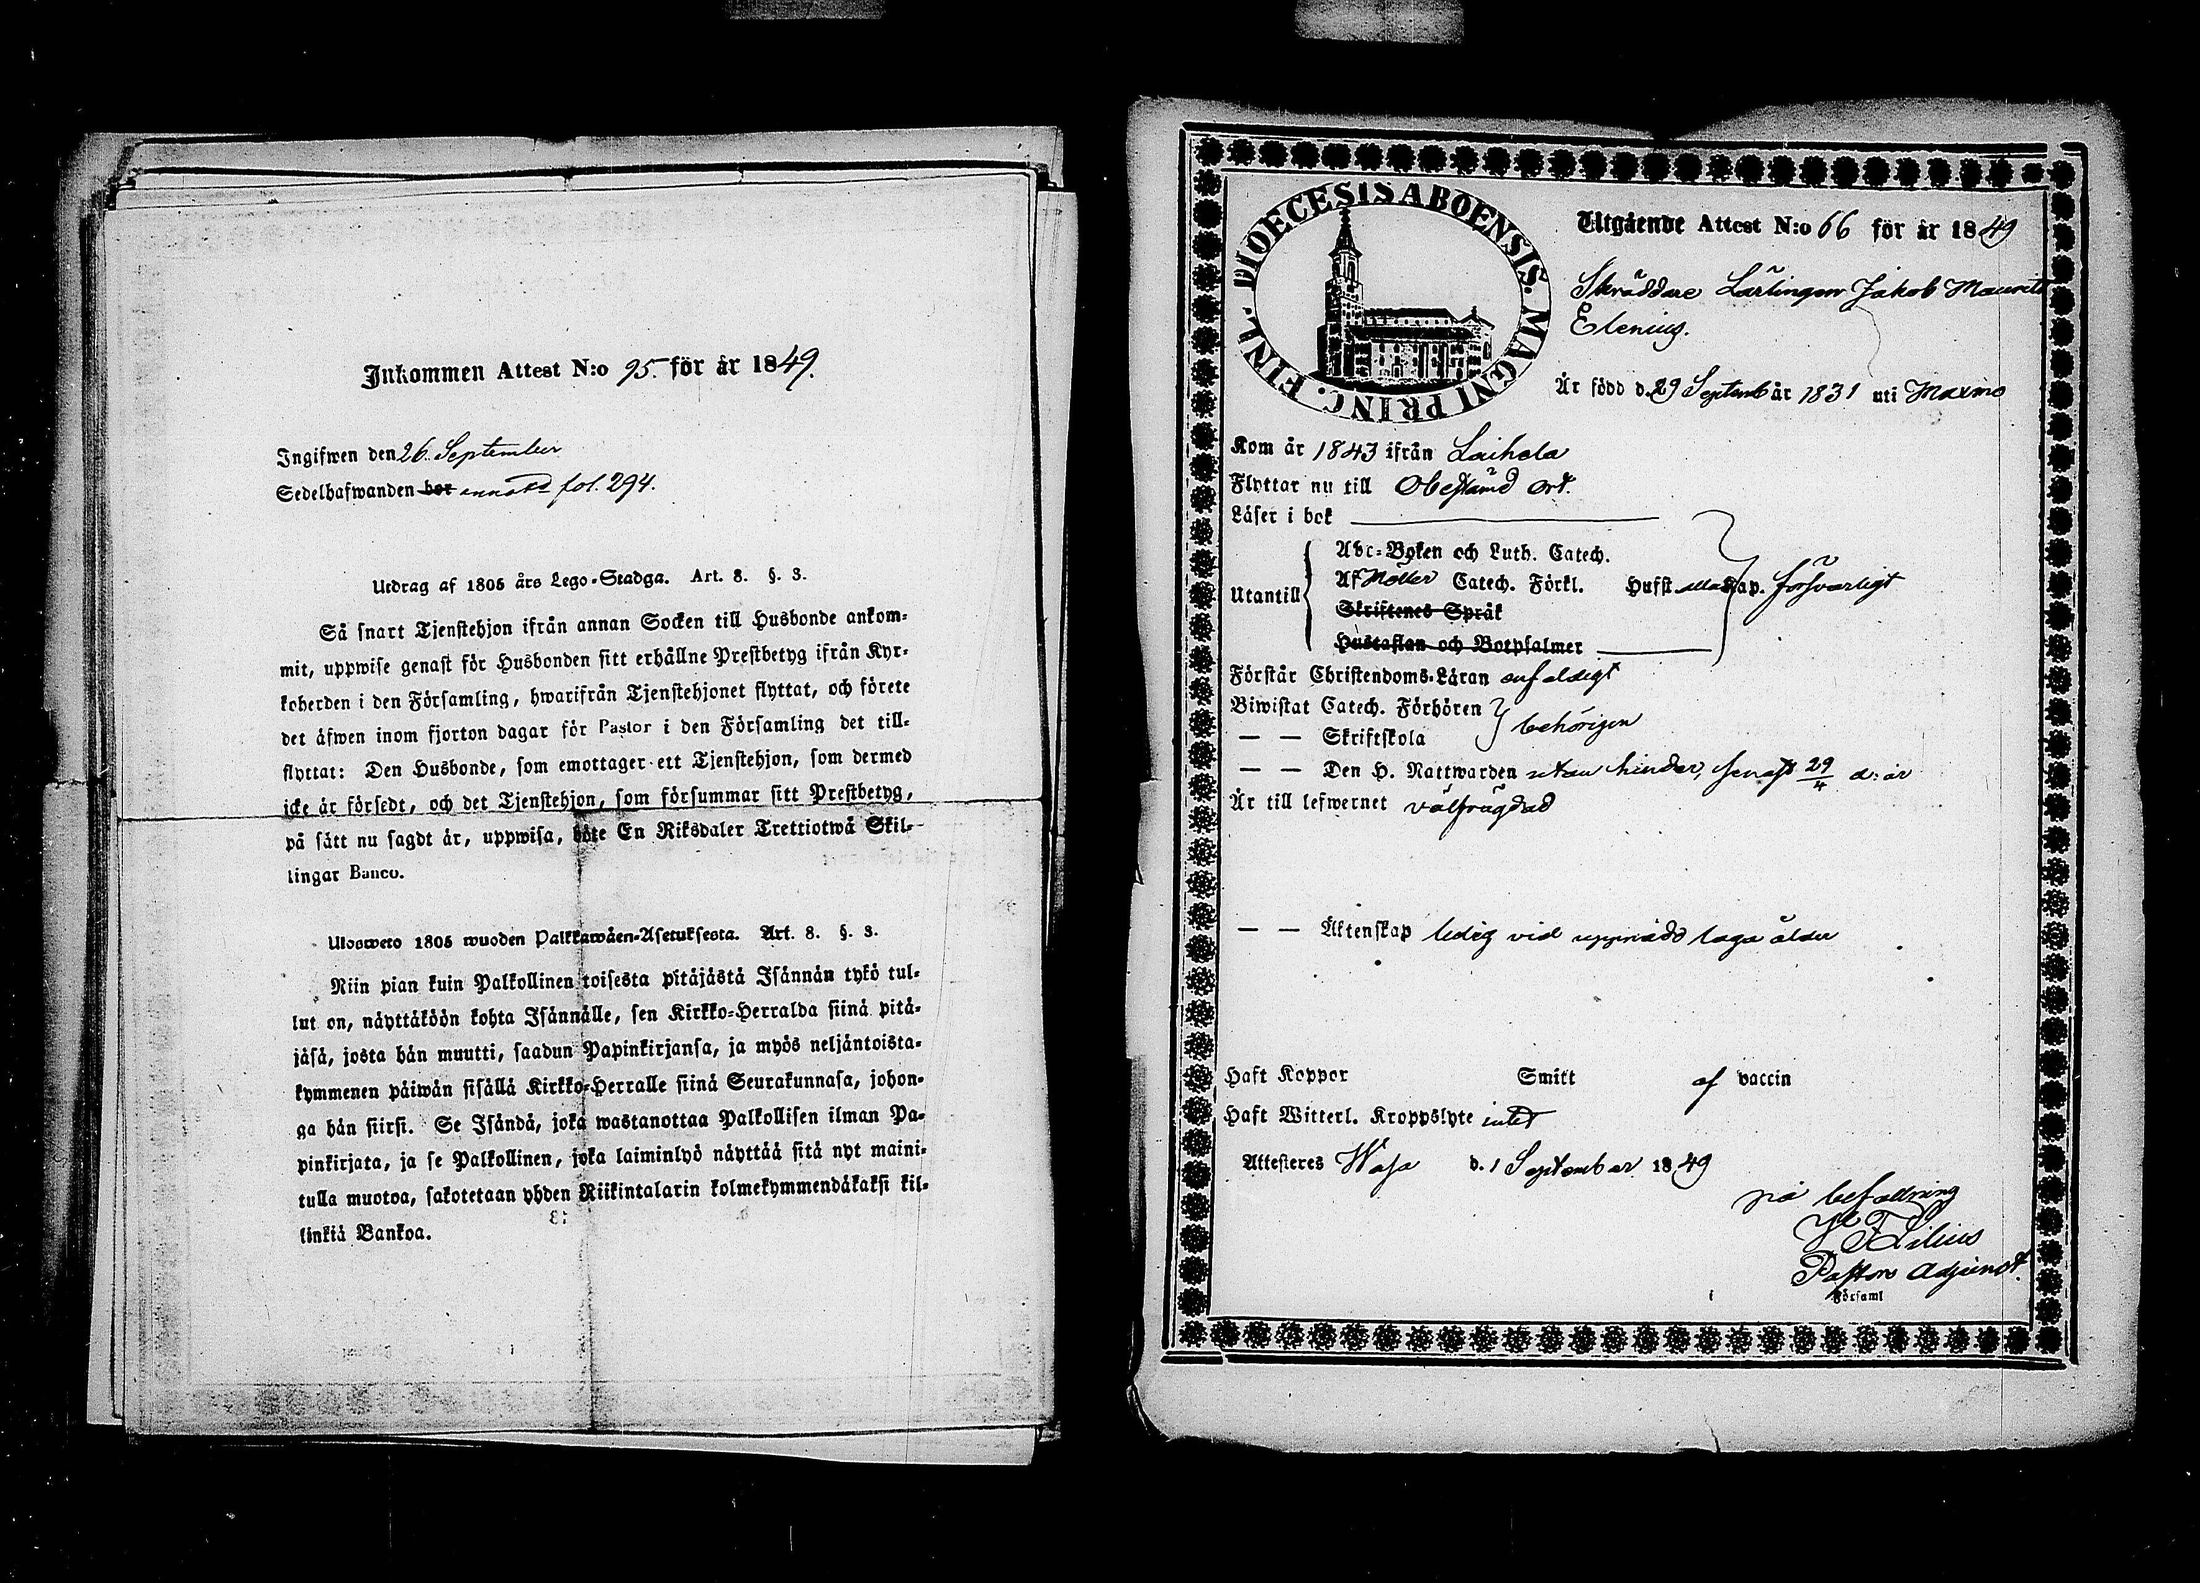 Inkommen Attest N:o 95. för år 1849.
Ingifwen den 26. September
Sedelhafwanden bor fol. 294.
Utdrag af 1805 års Lego-Stadga. Art. 8. §. 3.
Så snart Tjenstehjon ifrån annan Socken till Husbonde ankom-
mit, uppwise genast för Husbonden sitt erhållne Prestbetyg ifrån Kyr-
koherden i den Församling, hwarifrån Tjenstehjonet flyttat, och förete
det äfwen inom fjorton dagar för Pastor i den Församling det till-
flyttat: Den Husbonde, som emottager ett Tjenstehjon, som dermed
icke är försedt, och det Tjenstehjon, som försummar sitt Prestbetyg,
på sätt nu sagdt är, uppwisa, böte En Riksdaler Trettiotwå Skil-
lingar Banco.
Ulosweto 1805 wuoden Palkkawäen-Asetuksesta. Art. 8. §. 3.
Niin pian kuin Palkollinen toisesta pitäjästä Isännän tykö tul-
lut on, näyttäköön kohta Isännälle, sen Kirkko-Herralda siinä pitä-
jäsä, josta hän muutti, saadun Papinkirjansa, ja myös neljäntoista-
kymmenen päiwän sisällä Kirkko-Herralle siinä Seurakunnasa, johon-
ga hän siirsi. Se Isändä, joka wastanottaa Palkollisen ilman Pa-
pinkirjata, ja se Palkollinen, joka laiminlyö näyttää sitä nyt maini-
tulla muotoa, sakotetaan yhden Riikintalarin kolmekymmendäkaksi kil-
linkiä Bankoa.
DIOECESIS ABOENSIS. MAGNI PRINC. FINL.
Utgående Attest N:o 66 för år 1849
Skräddare Lärlingen Jakob Maurits
Elenius.
Är född d. 29 Septemb år 1831 uti Maxmo
Kom år 1843 ifrån Laihela
Flyttar nu till Obestämd ort.
Läser i bok
Abc-Boken och Luth. Catech.
Utantill Af Möller Catech. Förkl. Hufst. Kap. försvarligt
Skriftenes Språk
Hustaflan och Botpsalmer
Förstår Christendoms-Läran enfaldigt
Biwistat Catech. Förhören
— — Skriftskola behörigen
— — Den H. Nattwarden utan hinder, senast 29/4 d: år
Är till lefwernet välfrägdad
— — Äktenskap ledig vid uppnådd laga ålder
Haft Koppor Smitt af vaccin
Haft Witterl. Kroppslyte intet
Attesteres Wasa d. 1 September 1849
på befallning
Lilius
Pastors Adjunct.
i Församl